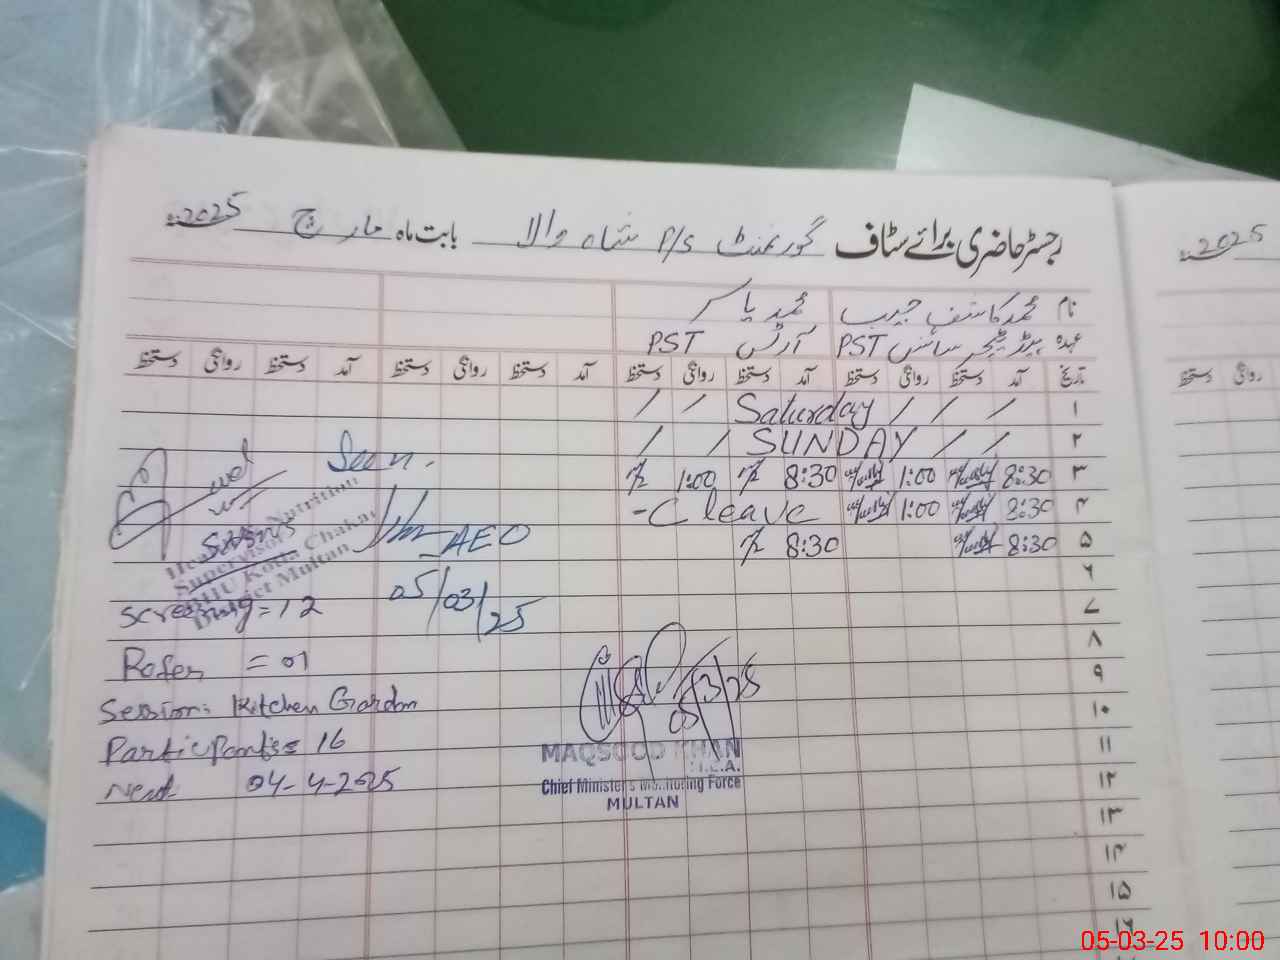 رجسٹر حاضری برائے سٹاف گورنمنٹ P/S شاہ والا بابت ماہ مارچ 2025ء
نام محمد کاشف حبیب محمد یاسر
عہدہ ہیڈ ٹیچر سائنس PST آرٹس PST
تاریخ آمد دستخط روانگی دستخط آمد دستخط روانگی دستخط آمد دستخط روانگی دستخط آمد دستخط روانگی دستخط
۱ / / / Saturday / /
۲ / / SUNDAY / /
۳ 8:30 1:00 8:30 1:00
۴ 8:30 1:00 C leave
۵ 8:30 8:30
۶
۷
۸
۹
۱۰
۱۱
۱۲
۱۳
۱۴
۱۵
۱۶
Seen.
AEO
05/03/25
Nutrition
Supervisor
Multan
Screening = 12
Refer = 01
Session: Kitchen Garden
Participants = 16
Next 04-4-2025
05/3/25
MAQSOOD KHAN
M.E.A.
Chief Minister's Monitoring Force
MULTAN
2025ء
روانگی دستخط
05-03-25 10:00